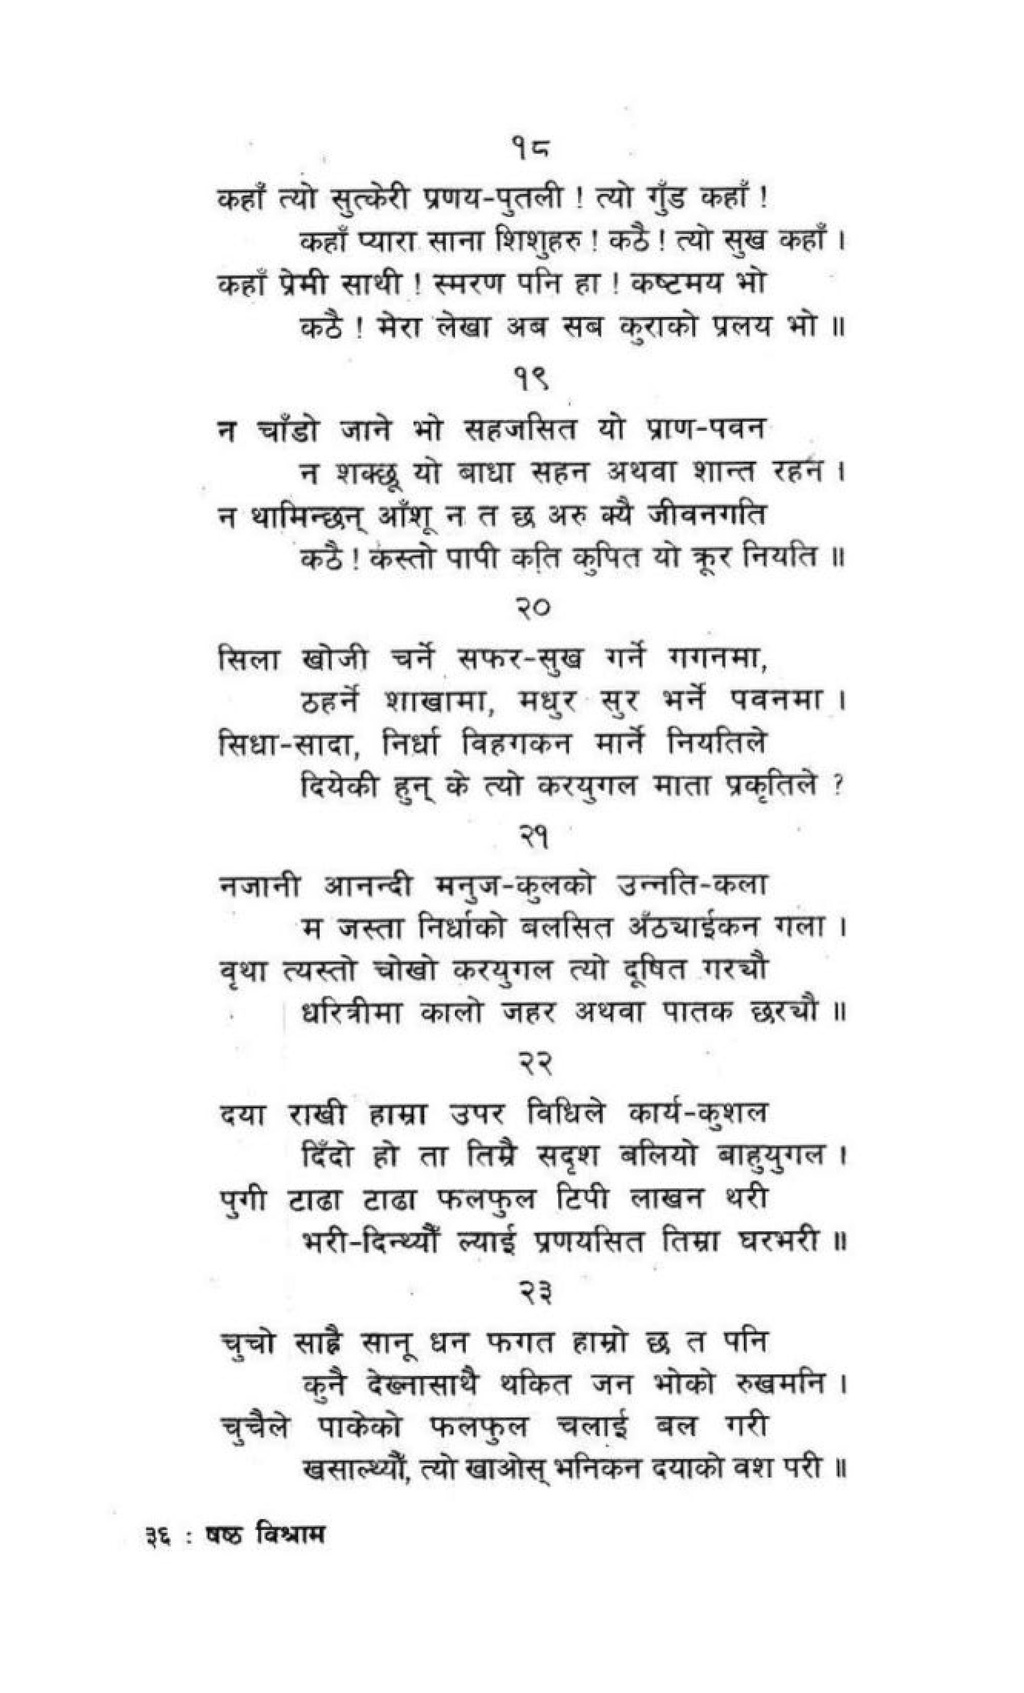 १८
कहाँ त्यो सुत्केरी प्रणय-पुतली ! त्यो गुँड कहाँ !
कहाँ प्यारा साना शिशुहरु ! कठै ! त्यो सुख कहाँ ।
कहाँ प्रेमी साथी ! स्मरण पनि हा ! कष्टमय भो
कठै ! मेरा लेखा अब सब कुराको प्रलय भो ॥
१९
न चाँडो जाने भो सहजसित यो प्राण-पवन
न शक्छू यो बाधा सहन अथवा शान्त रहन ।
न थामिन्छन् आँशू न त छ अरु क्यै जीवनगति
कठै ! कस्तो पापी कति कुपित यो क्रूर नियति ॥
२०
सिला खोजी चर्ने सफर-सुख गर्ने गगनमा,
ठहर्ने शाखामा, मधुर सुर भर्ने पवनमा ।
सिधा-सादा, निर्धा विहगकन मार्ने नियतिले
दियेकी हुन् के त्यो करयुगल माता प्रकृतिले ?
२१
नजानी आनन्दी मनुज-कुलको उन्नति-कला
म जस्ता निर्धाको बलसित अँठ्याईकन गला ।
वृथा त्यस्तो चोखो करयुगल त्यो दूषित गर्‍यौ
धरित्रीमा कालो जहर अथवा पातक छर्‍यौ ॥
२२
दया राखी हाम्रा उपर विधिले कार्य-कुशल
दिँदो हो ता तिम्रै सदृश बलियो बाहुयुगल ।
पुगी टाढा टाढा फलफुल टिपी लाखन थरी
भरी-दिन्थ्यौँ ल्याई प्रणयसित तिम्रा घरभरी ॥
२३
चुचो साह्रै सानू धन फगत हाम्रो छ त पनि
कुनै देख्नासाथै थकित जन भोको रुखमनि ।
चुचैले पाकेको फलफुल चलाई बल गरी
खसाल्थ्यौँ, त्यो खाओस् भनिकन दयाको वश परी ॥
३६ : षष्ठ विश्राम